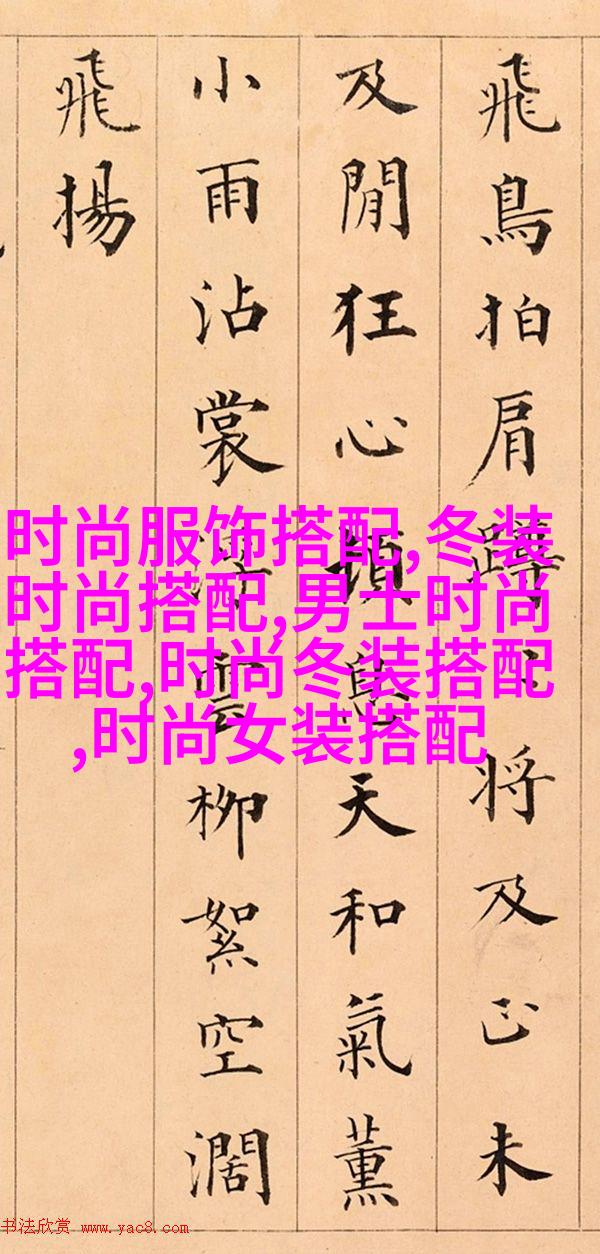 飛鳥拍肩蹲将及正未
及閒狂心頓天和氣薰
小雨沾裳浮雲柳絮空濶
飛揚
时尚服饰搭配,冬装
时尚搭配,男士时尚
搭配,时尚冬装搭配
,时尚女装搭配
书法欣赏 www.yac8.com